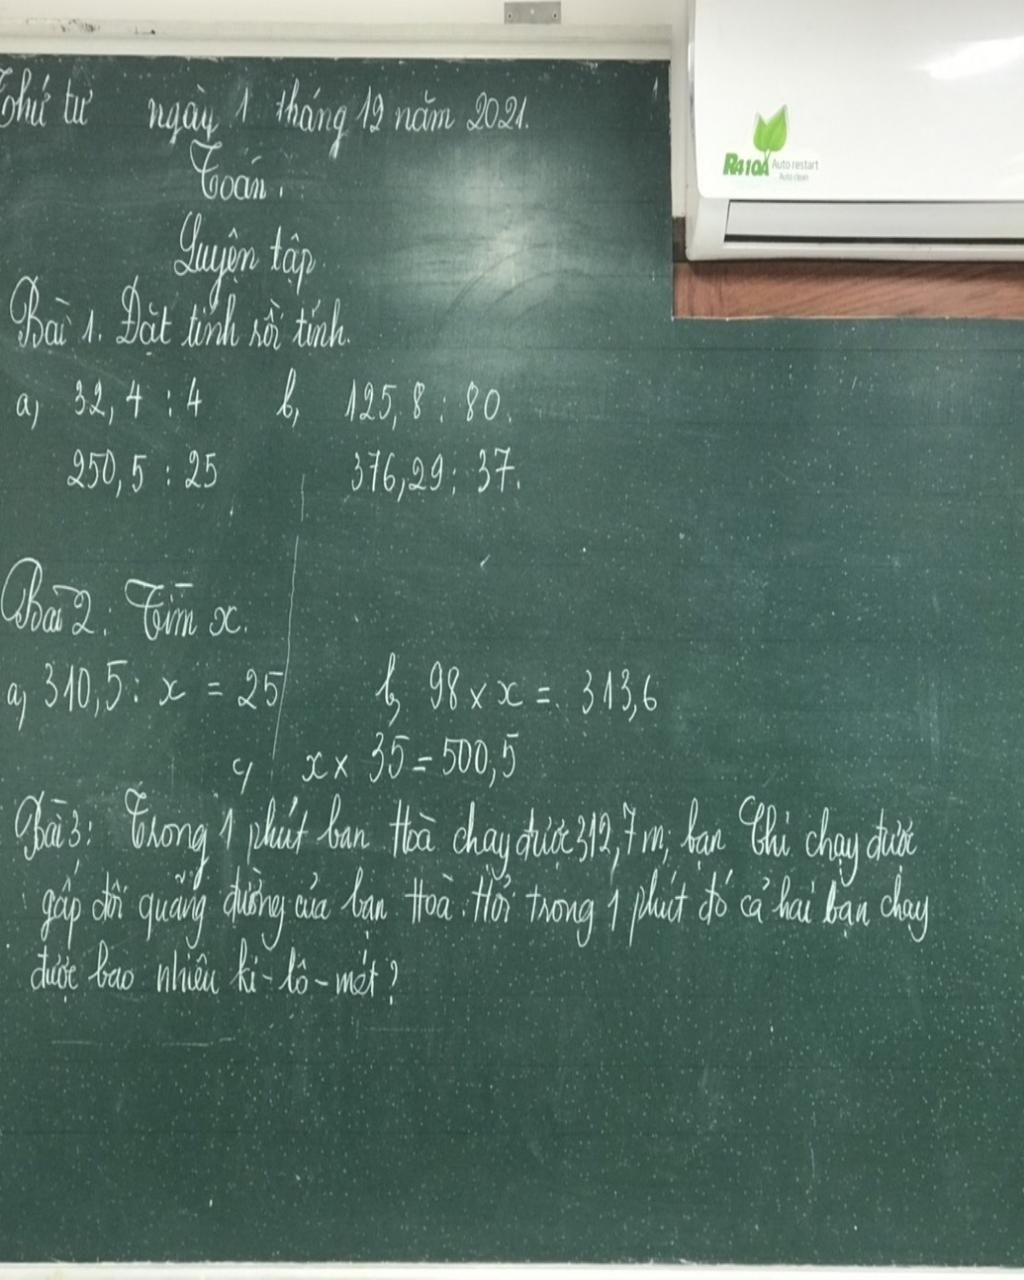 Thứ tư ngày 1 tháng 12 năm 2021.
Toán.
Luyện tập
Bài 1. Đặt tính rồi tính.
a, 32,4 : 4 b, 125,8 : 80.
250,5 : 25 376,29 : 37.
Bài 2. Tìm x.
a, 310,5 : x = 25 b, 98 x x = 313,6
c, x x 35 = 500,5
Bài 3: Trong 1 phút bạn Hoà chạy được 312,7 m, bạn Chi chạy được
gấp đôi quãng đường của bạn Hoà. Hỏi trong 1 phút đó cả hai bạn chạy
được bao nhiêu ki-lô-mét?
R410A Auto restart
Auto clean